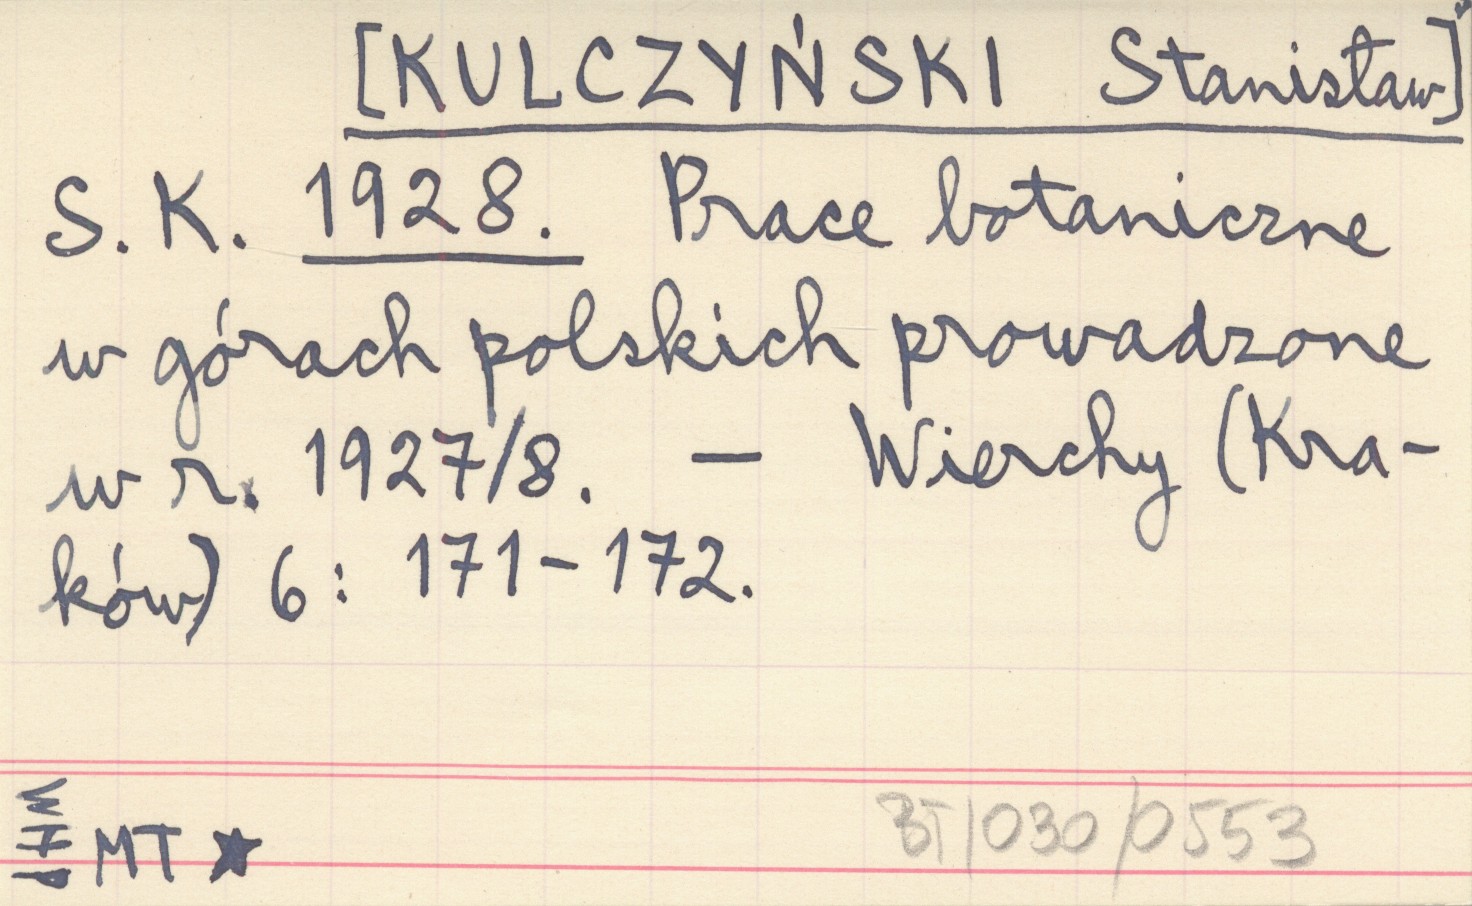 [KULCZYŃSKI Stanisław]
S. K. 1928. Prace botaniczne
w górach polskich prowadzone
w r. 1927/8. — Wierchy (Kra-
ków) 6: 171-172.
MT ★
BT/030/0553